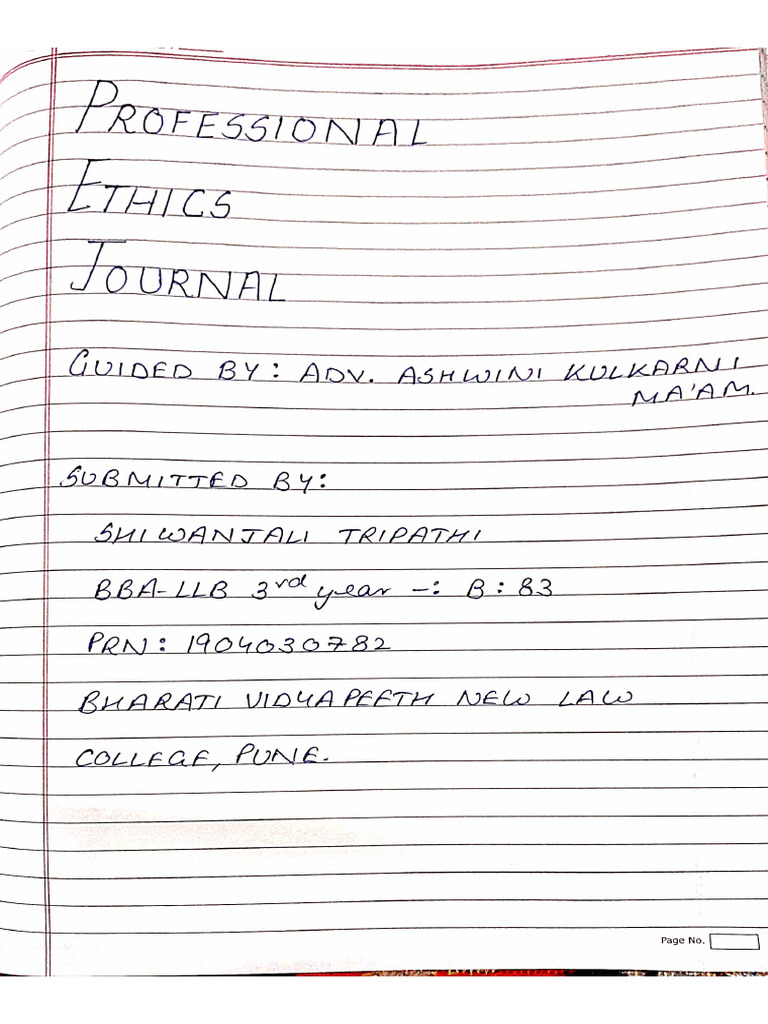 PROFESSIONAL
ETHICS
JOURNAL
GUIDED BY: ADV. ASHWINI KULKARNI
MA'AM.
SUBMITTED BY:
SHIWANJALI TRIPATHI
BBA-LLB 3rd year -: B: 83
PRN: 1904030782
BHARATI VIDYAPEETH NEW LAW
COLLEGE, PUNE.
Page No.